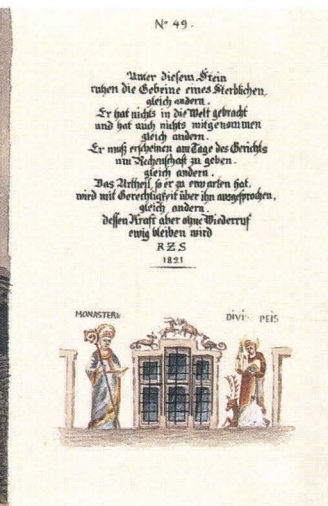 Nº 49.
Unter diesem Stein
ruhen die Gebeine eines Sterblichen,
gleich andern.
Er hat nichts in die Welt gebracht
und hat auch nichts mitgenommen
gleich andern.
Er muß erscheinen am Tage des Gerichts
um Rechenschaft zu geben.
gleich andern.
Das Urtheil, so er zu erwarten hat.
wird mit Gerechtigkeit über ihn ausgesprochen,
gleich andern.
dessen Kraft aber ohne Wiederruf
ewig bleiben wird
R Z S
1821
MONASTERI DIVI PEIS